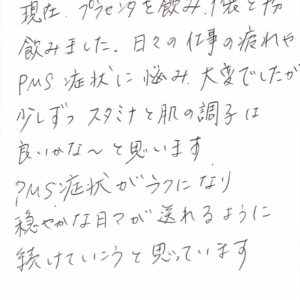 現在、プラセンタを飲み、1袋と少
飲みました。日々の仕事の疲れや
PMS症状に悩み、大変でしたが
少しずつ スタミナと肌の調子は
良いかな〜と思います。
PMS症状がラクになり
穏やかな日々が送れるように
続けていこうと思っています